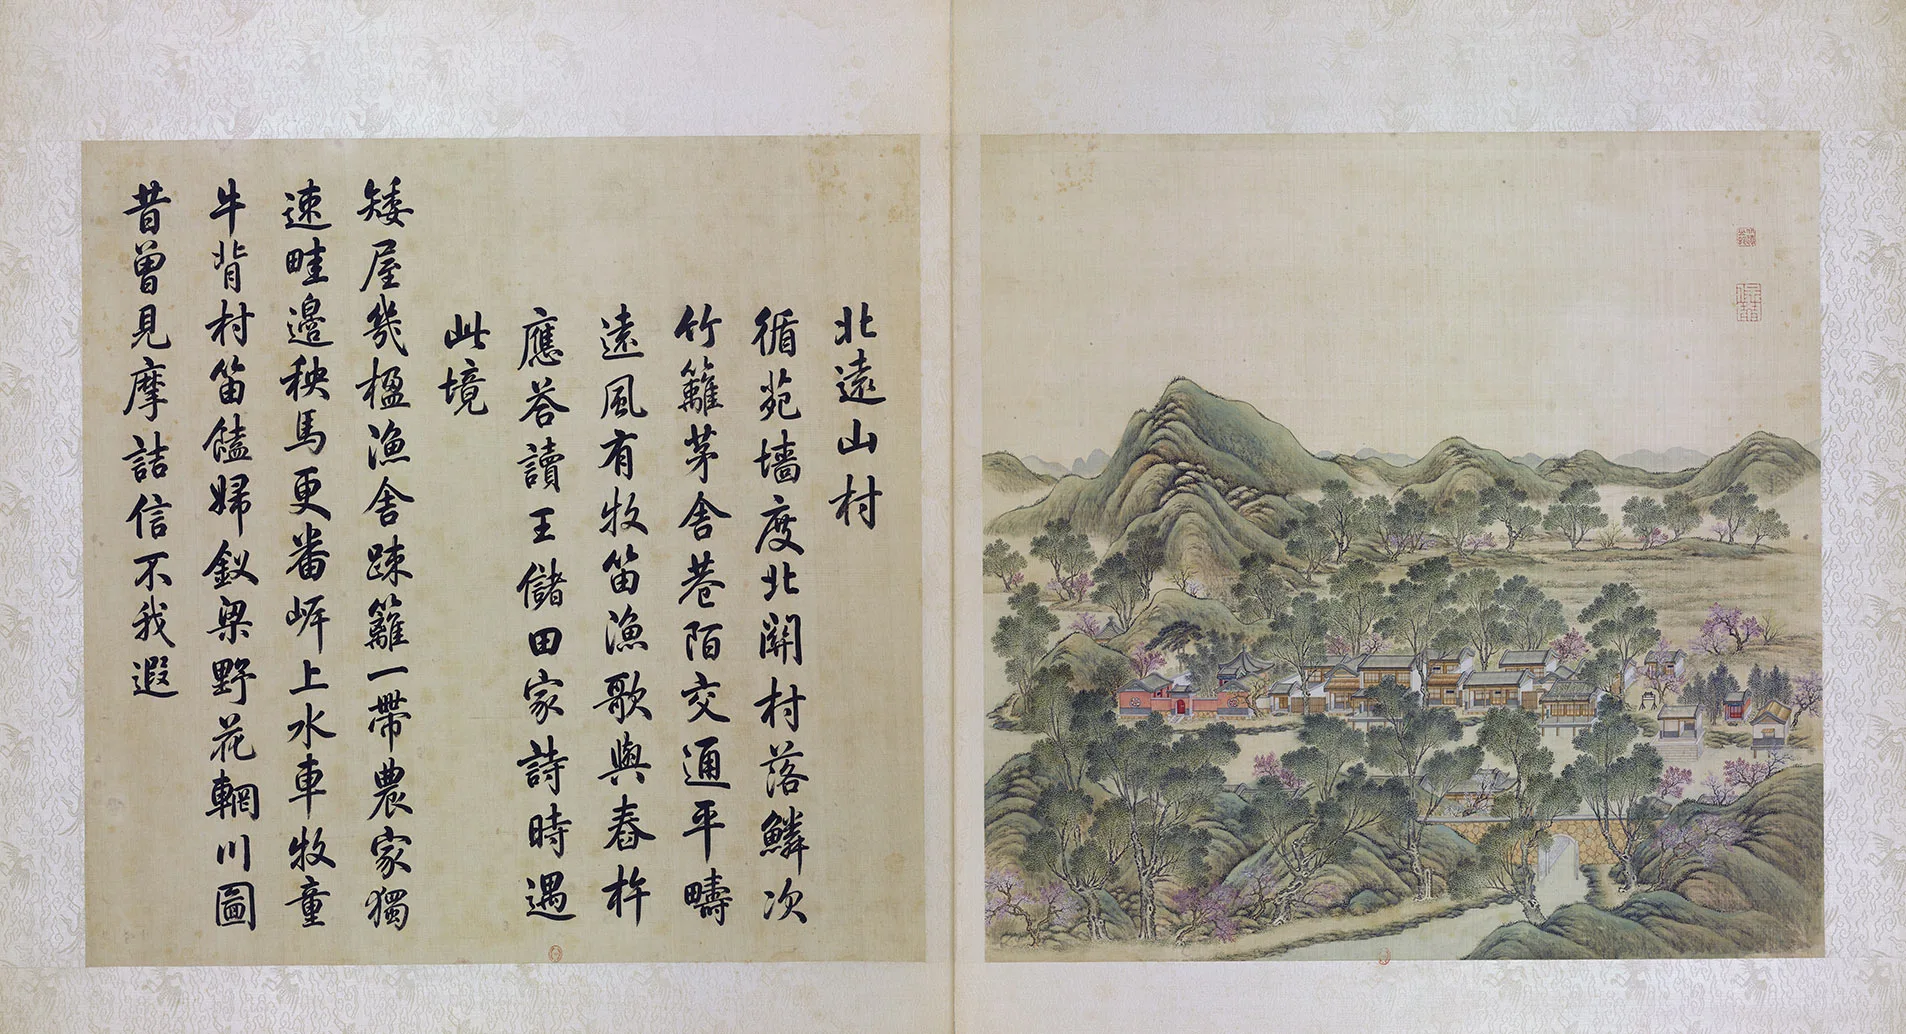 北遠山村
循苑墻度北關村落鱗次
竹籬茅舍巷陌交通平疇
遠風有牧笛漁歌與舂杵
應答讀王儲田家詩時遇
此境
矮屋幾楹漁舍踈籬一帶農家獨
速畦邊秧馬更番岸上水車牧童
牛背村笛饁婦釵梁野花輞川圖
昔曾見摩詰信不我遐